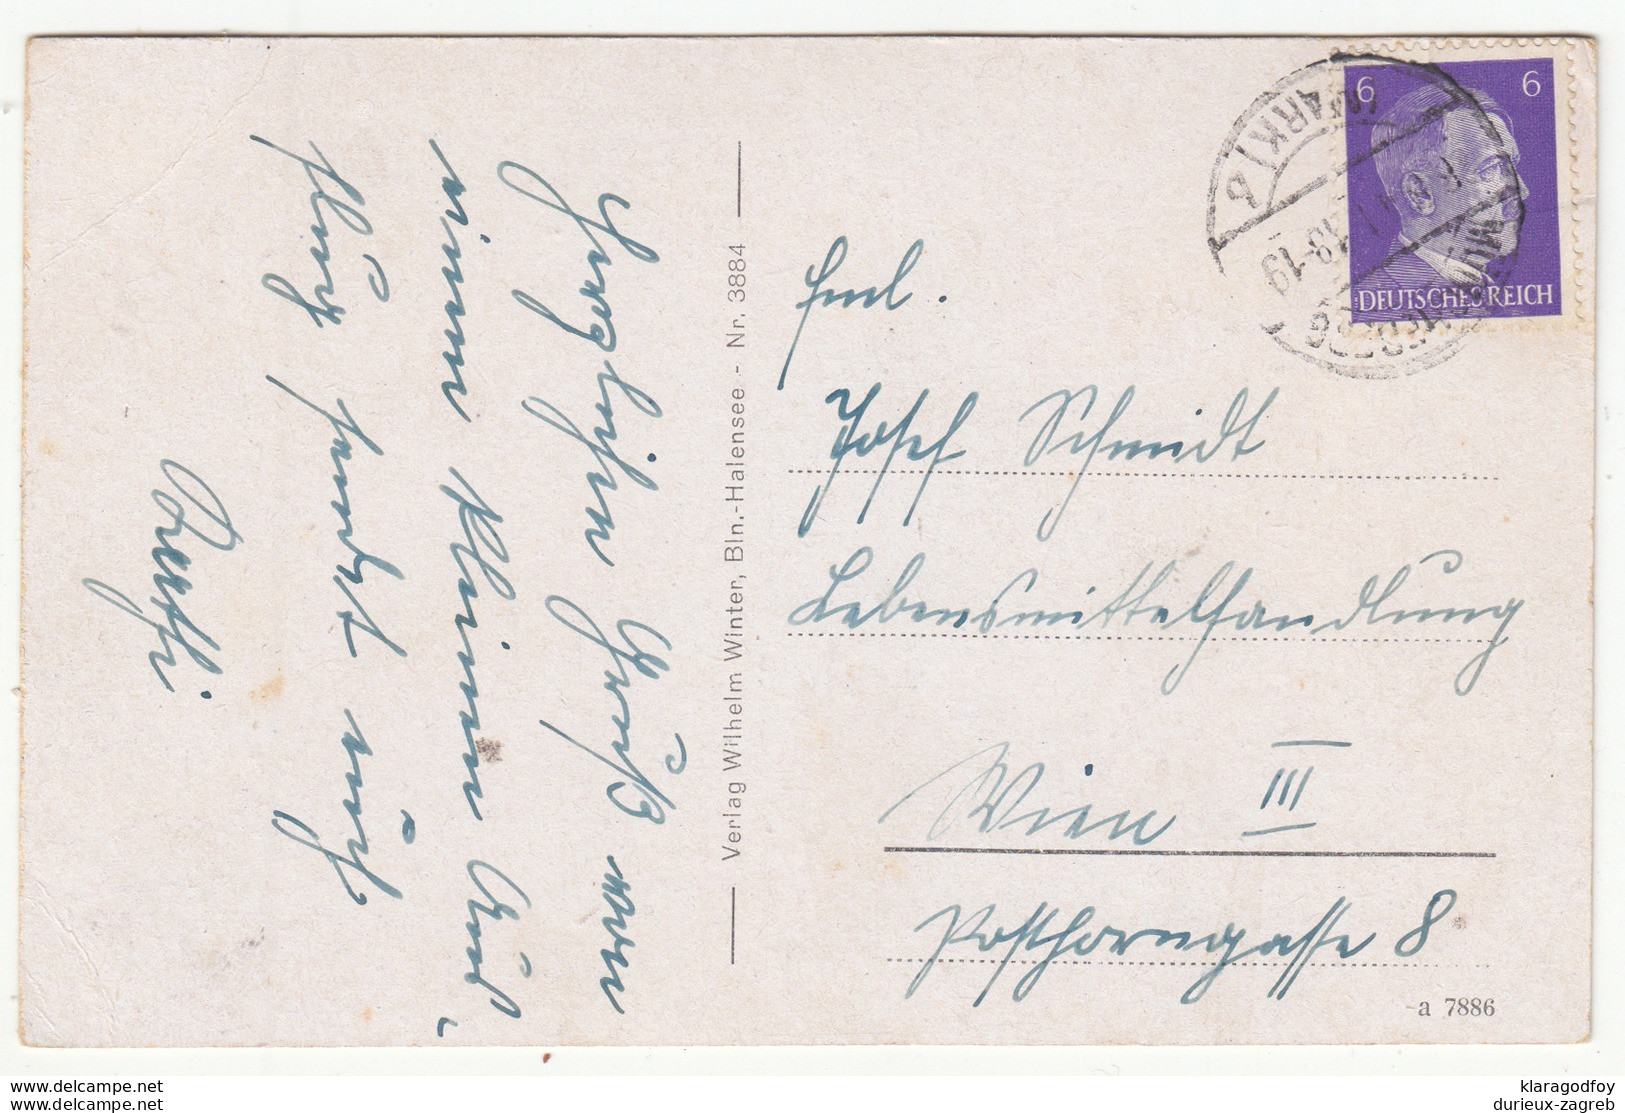 Herzlichen Gruß von
einem kleinen
sendet
Berthi
Verlag Wilhelm Winter, Bln.-Halensee - Nr. 3884
6 6
DEUTSCHES REICH
8.
-18-19
Faml.
Josef Schmidt
Lebensmittelhandlung
Wien III
Posthorngasse 8
a 7886
delcampe.net
delcampe.net
klaragodfoy
durieux-zagreb